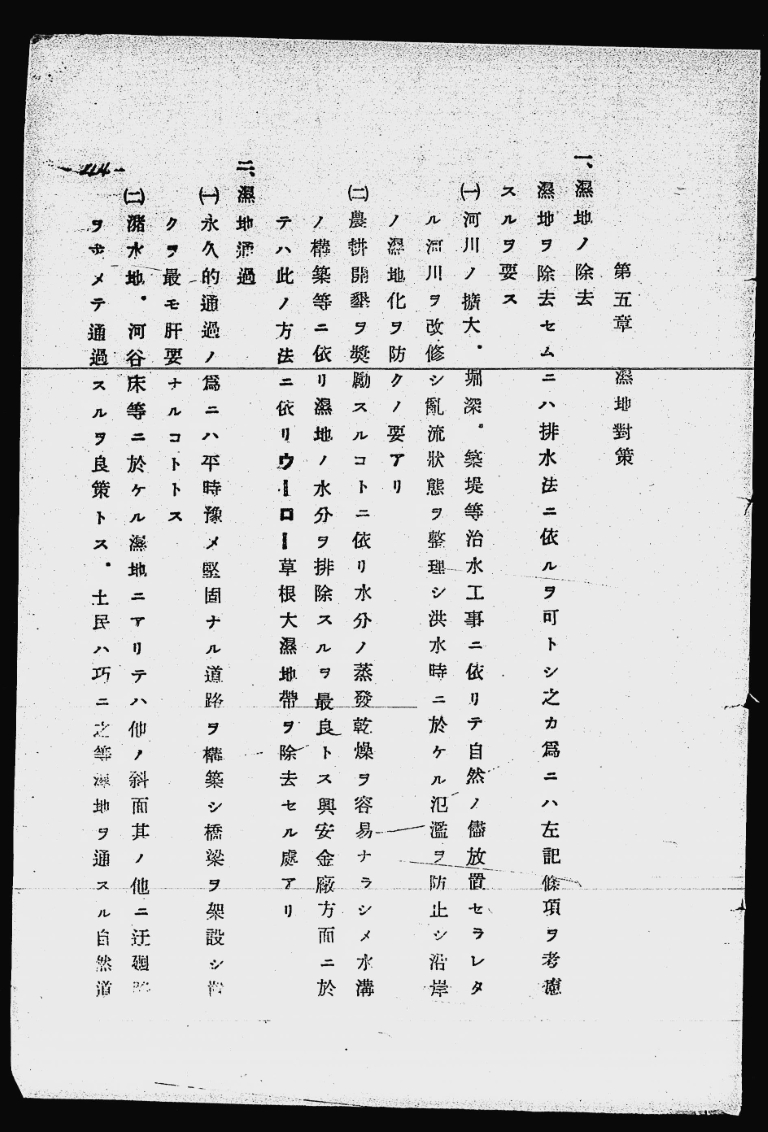 第五章　濕地對策
一、濕地ノ除去
濕地ヲ除去セムニハ排水法ニ依ルヲ可トシ之カ爲ニハ左記條項ヲ考慮
スルヲ要ス
㈠河川ノ擴大．堀深．築堤等治水工事ニ依リテ自然ノ儘放置セラレタ
ル河川ヲ改修シ亂流狀態ヲ整理シ洪水時ニ於ケル氾濫ヲ防止シ沿岸
ノ濕地化ヲ防クノ要アリ
㈡農耕開墾ヲ奬勵スルコトニ依リ水分ノ蒸發乾燥ヲ容易ナラシメ水溝
ノ構築等ニ依リ濕地ノ水分ヲ排除スルヲ最良トス興安金廠方面ニ於
テハ此ノ方法ニ依リウーロー草根大濕地帶ヲ除去セル處アリ
二、濕地通過
㈠永久的通過ノ爲ニハ平時豫メ堅固ナル道路ヲ構築シ橋梁ヲ架設シ置
クヲ最モ肝要ナルコトトス
㈡瀦水地．河谷床等ニ於ケル濕地ニアリテハ他ノ斜面其ノ他ニ迂廻
ヲ求メテ通過スルヲ良策トス．土民ハ巧ニ之等濕地ヲ通スル自然道
-44-